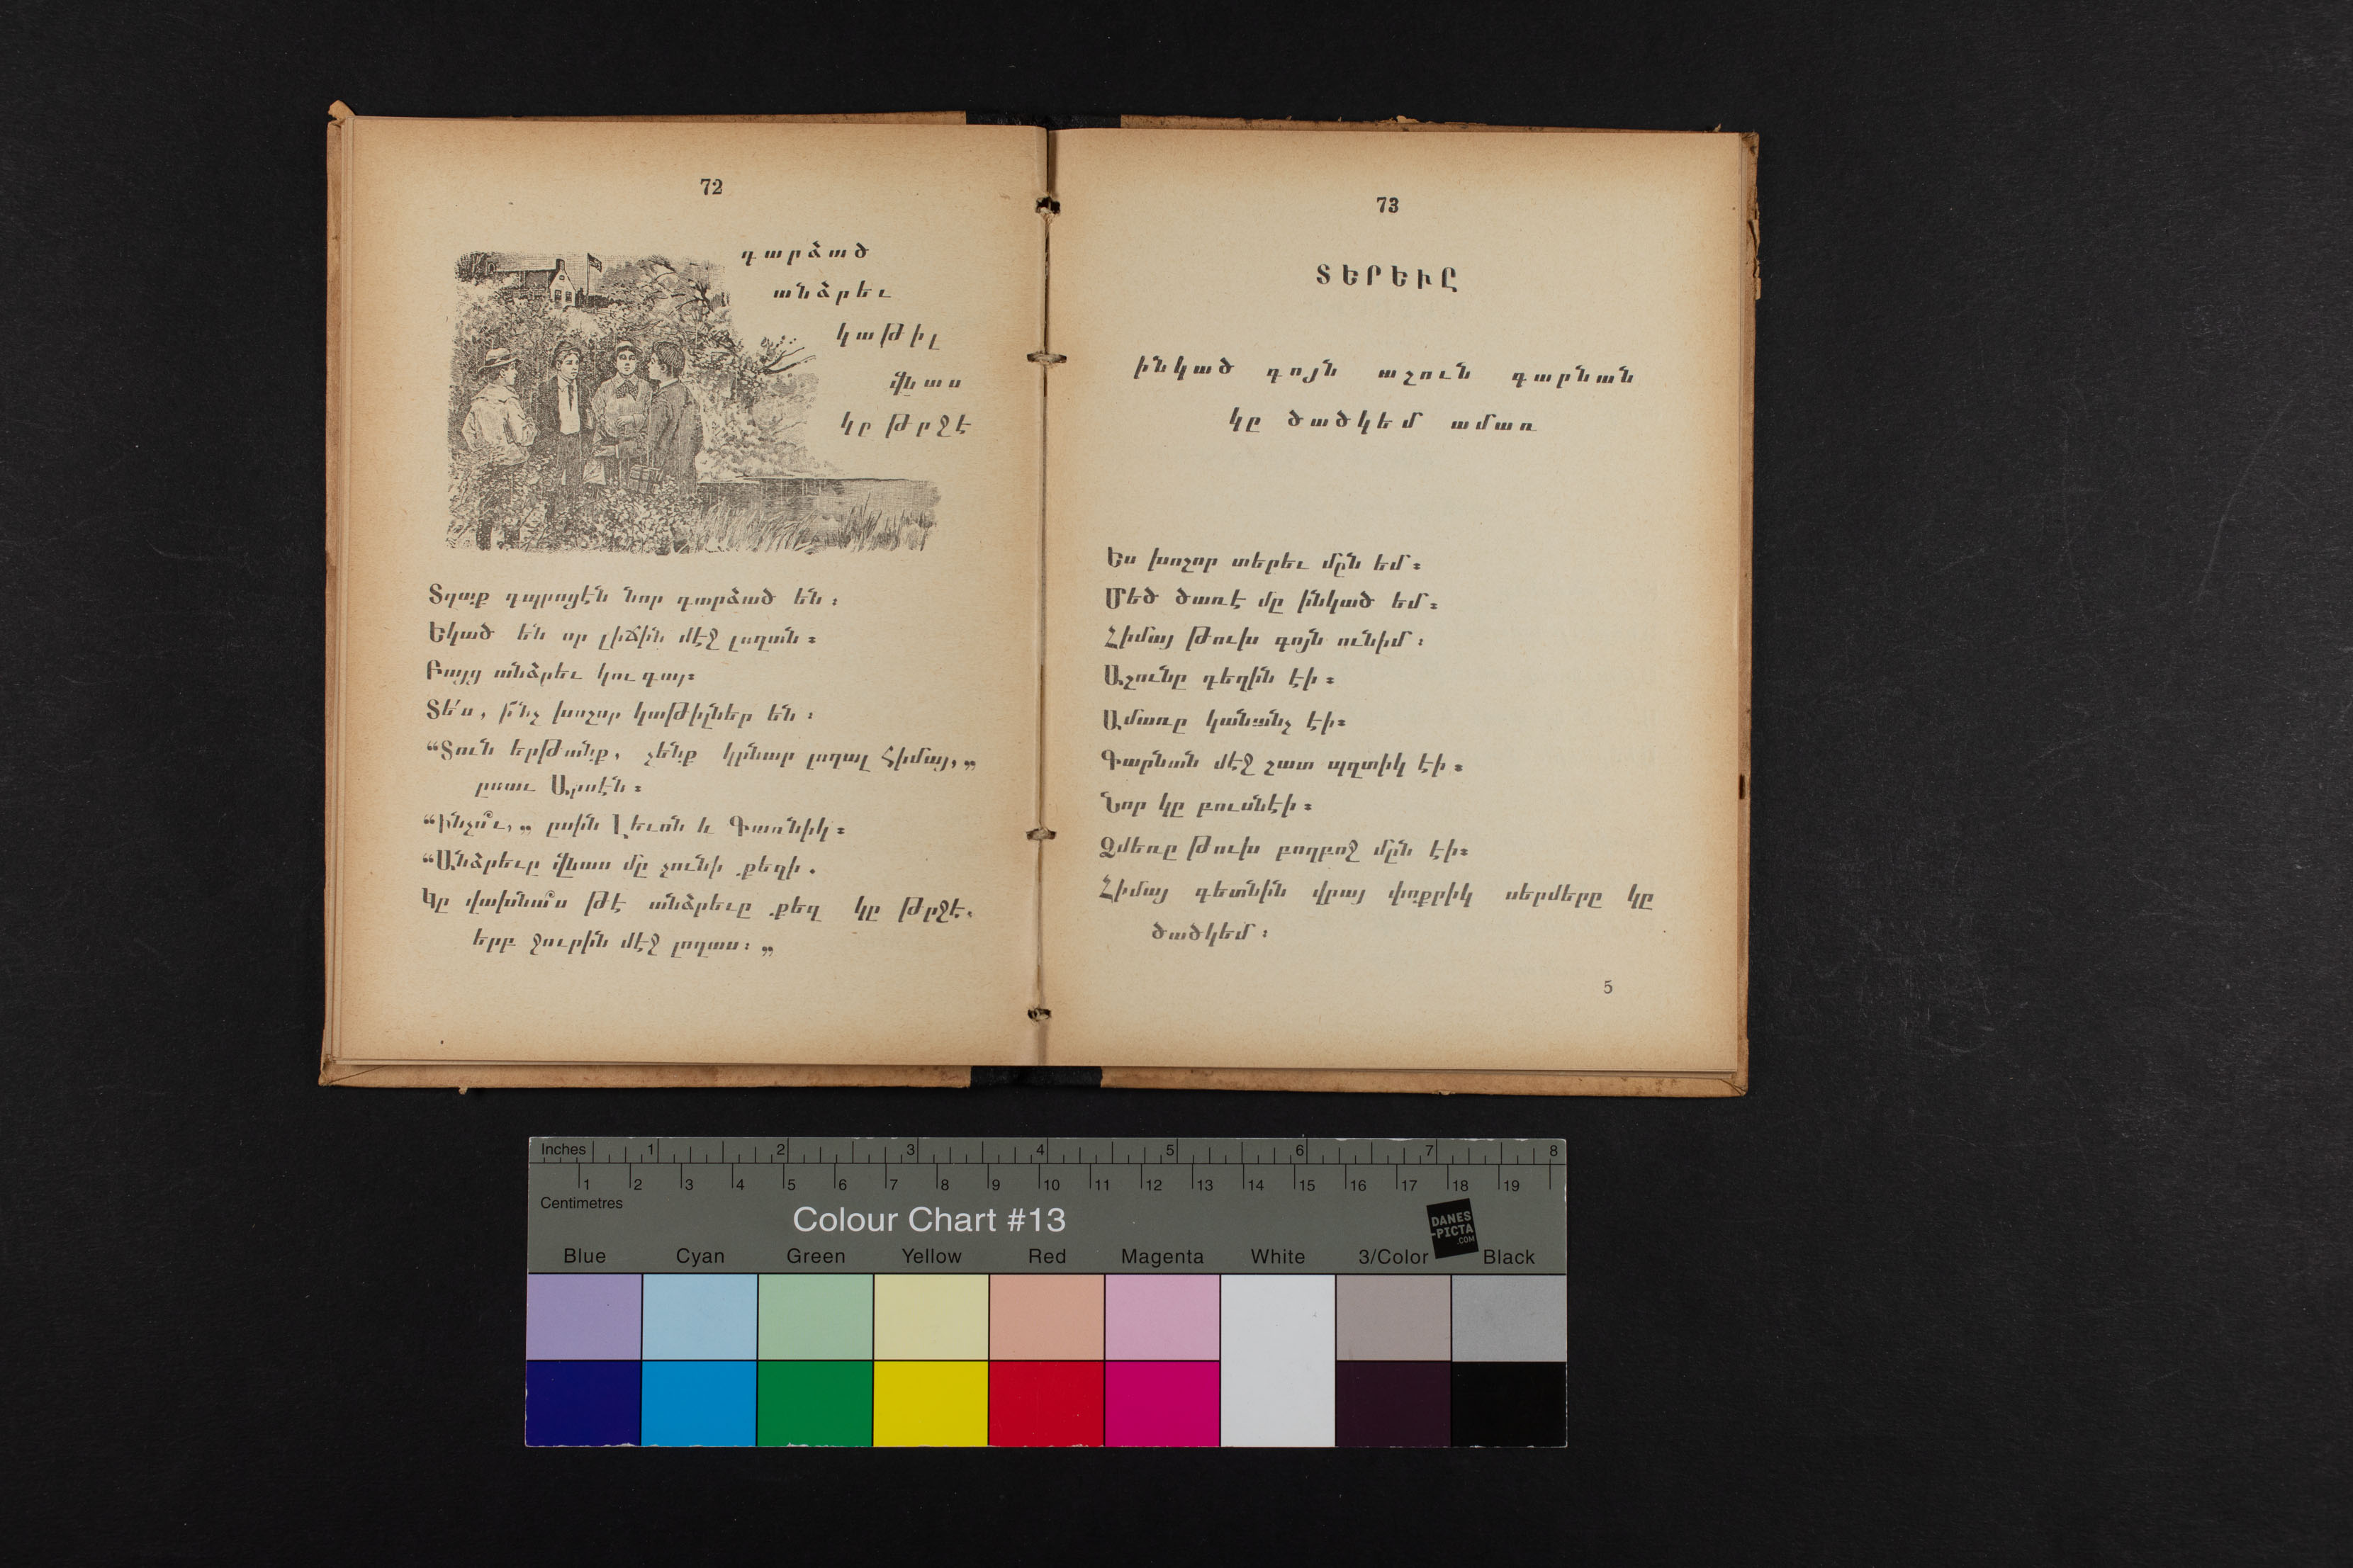 72
դարձած
անձրեւ
կաթիլ
վնաս
կը թրջէ
Տղաք դպրոցէն նոր դարձած են։
Եկած են որ լիճին մէջ լողան։
Բայց անձրեւ կու գայ։
Տե՛ս, ի՛նչ խոշոր կաթիլներ են։
“Տուն երթանք, չենք կրնար լողալ հիմայ,„
ըսաւ Արսէն։
“Ինչո՞ւ,„ ըսին Լեւոն և Գառնիկ։
“Անձրեւը վնաս մը չունի քեզի.
Կը վախնա՞ս թէ անձրեւը քեզ կը թրջէ,
երբ ջուրին մէջ լողաս։„
73
ՏԵՐԵՒԸ
ինկած գոյն աշուն գարնան
կը ծածկեմ ամառ
Ես խոշոր տերեւ մըն եմ։
Մեծ ծառէ մը ինկած եմ։
Հիմայ թուխ գոյն ունիմ։
Աշունը դեղին էի։
Ամառը կանանչ էի։
Գարնան մէջ շատ պզտիկ էի։
Նոր կը բուսնէի։
Ձմեռը թուխ բողբոջ մըն էի։
Հիմայ գետնին վրայ փոքրիկ սերմերը կը
ծածկեմ։
5
Inches 1 2 3 4 5 6 7 8
1 2 3 4 5 6 7 8 9 10 11 12 13 14 15 16 17 18 19
Centimetres
Colour Chart #13
DANES
-PICTA
.COM
Blue Cyan Green Yellow Red Magenta White 3/Color Black